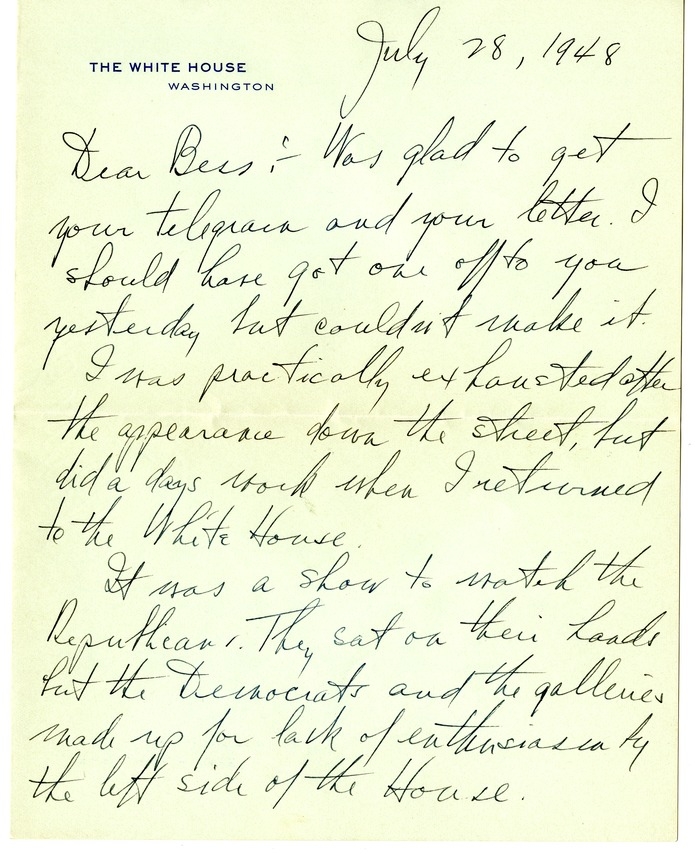 THE WHITE HOUSE
WASHINGTON
July 28, 1948
Dear Bess:- Was glad to get
your telegram and your letter. I
should have got one off to you
yesterday but couldn't make it.
I was practically exhausted after
the appearance down the street, but
did a days work when I returned
to the White House.
It was a show to watch the
Republicans. They sat on their hands
but the Democrats and the galleries
made up for lack of enthusiasm by
the left side of the House.